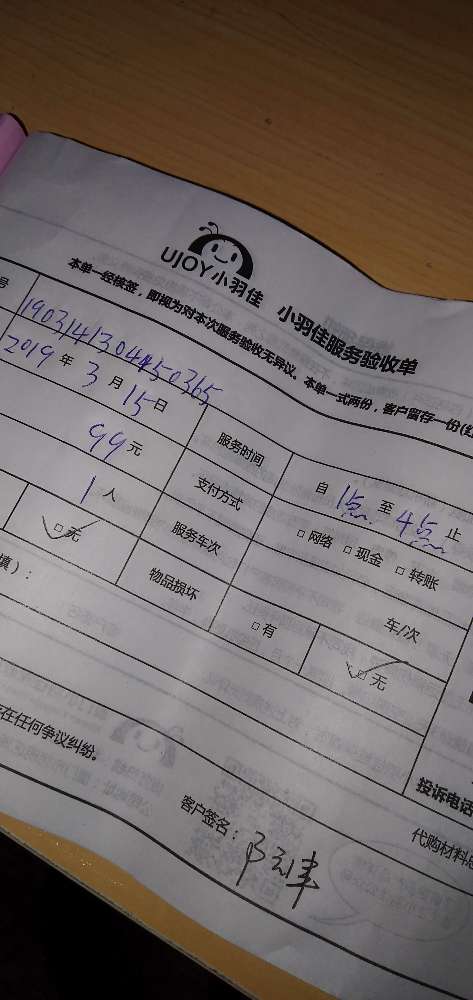 UJOY小羽佳 小羽佳服务验收单
本单一经核签，即视为对本次服务验收无异议。本单一式两份，客户留存一份(红
号 1903141304450365
2019 年 3 月 15 日 服务时间 自 1点 至 4点 止
99 元 支付方式 □网络 □现金 □转账
1 人 服务车次 车/次
□无 物品损坏 □有 □无
填）：
存在任何争议纠纷。
投诉电话
客户签名：
代购材料总